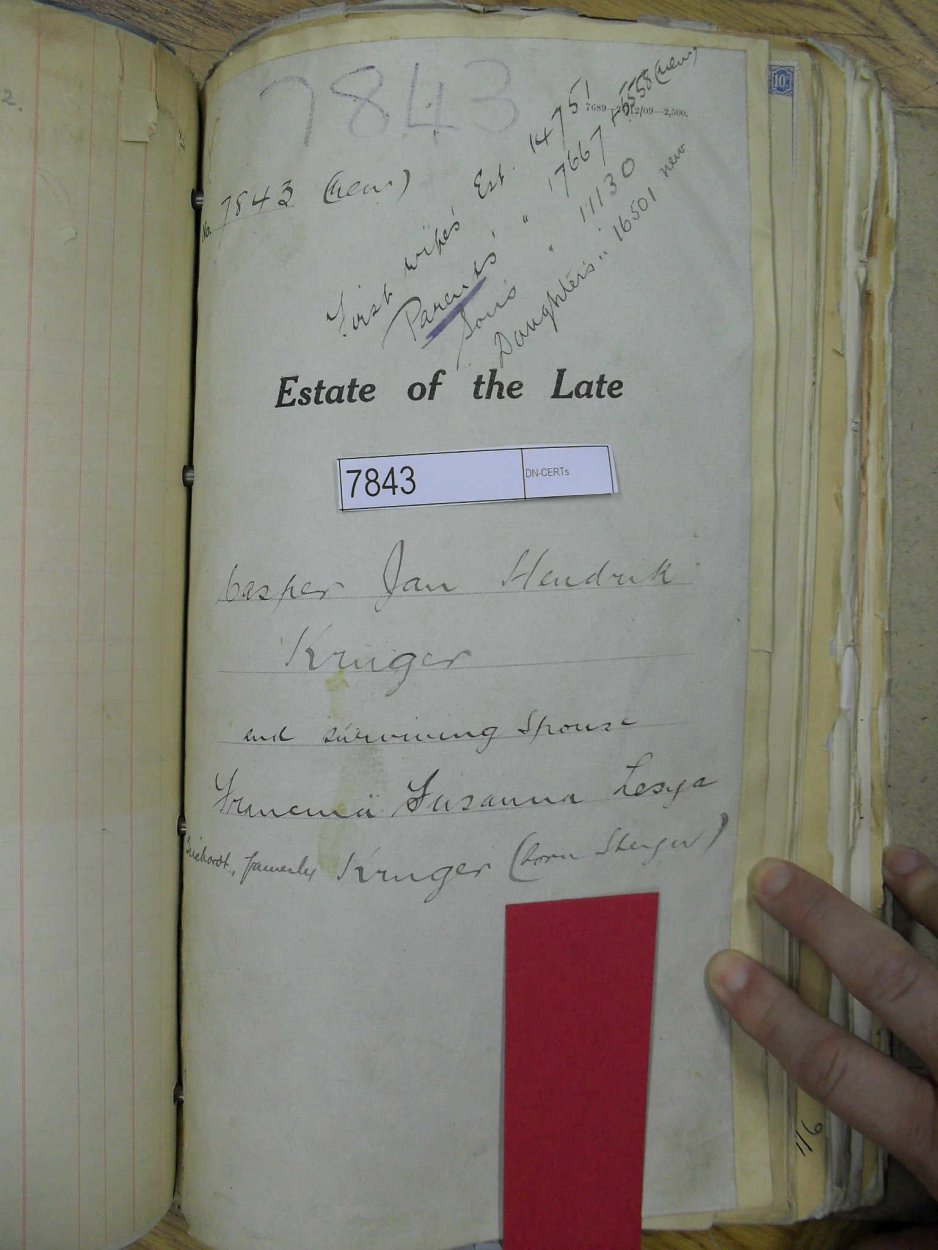 2.
7843
10
7689—2/12/09—2,500.
No. 7843 (new)
First wife's Est. 14751
Parents' " 17667 + 5558 (new)
Son's " 11130
Daughter's " 16501 new
Estate of the Late
7843 DN-CERTs
Casper Jan Hendrik
Kruger
and surviving Spouse
Susanna
formerly Kruger (born
116